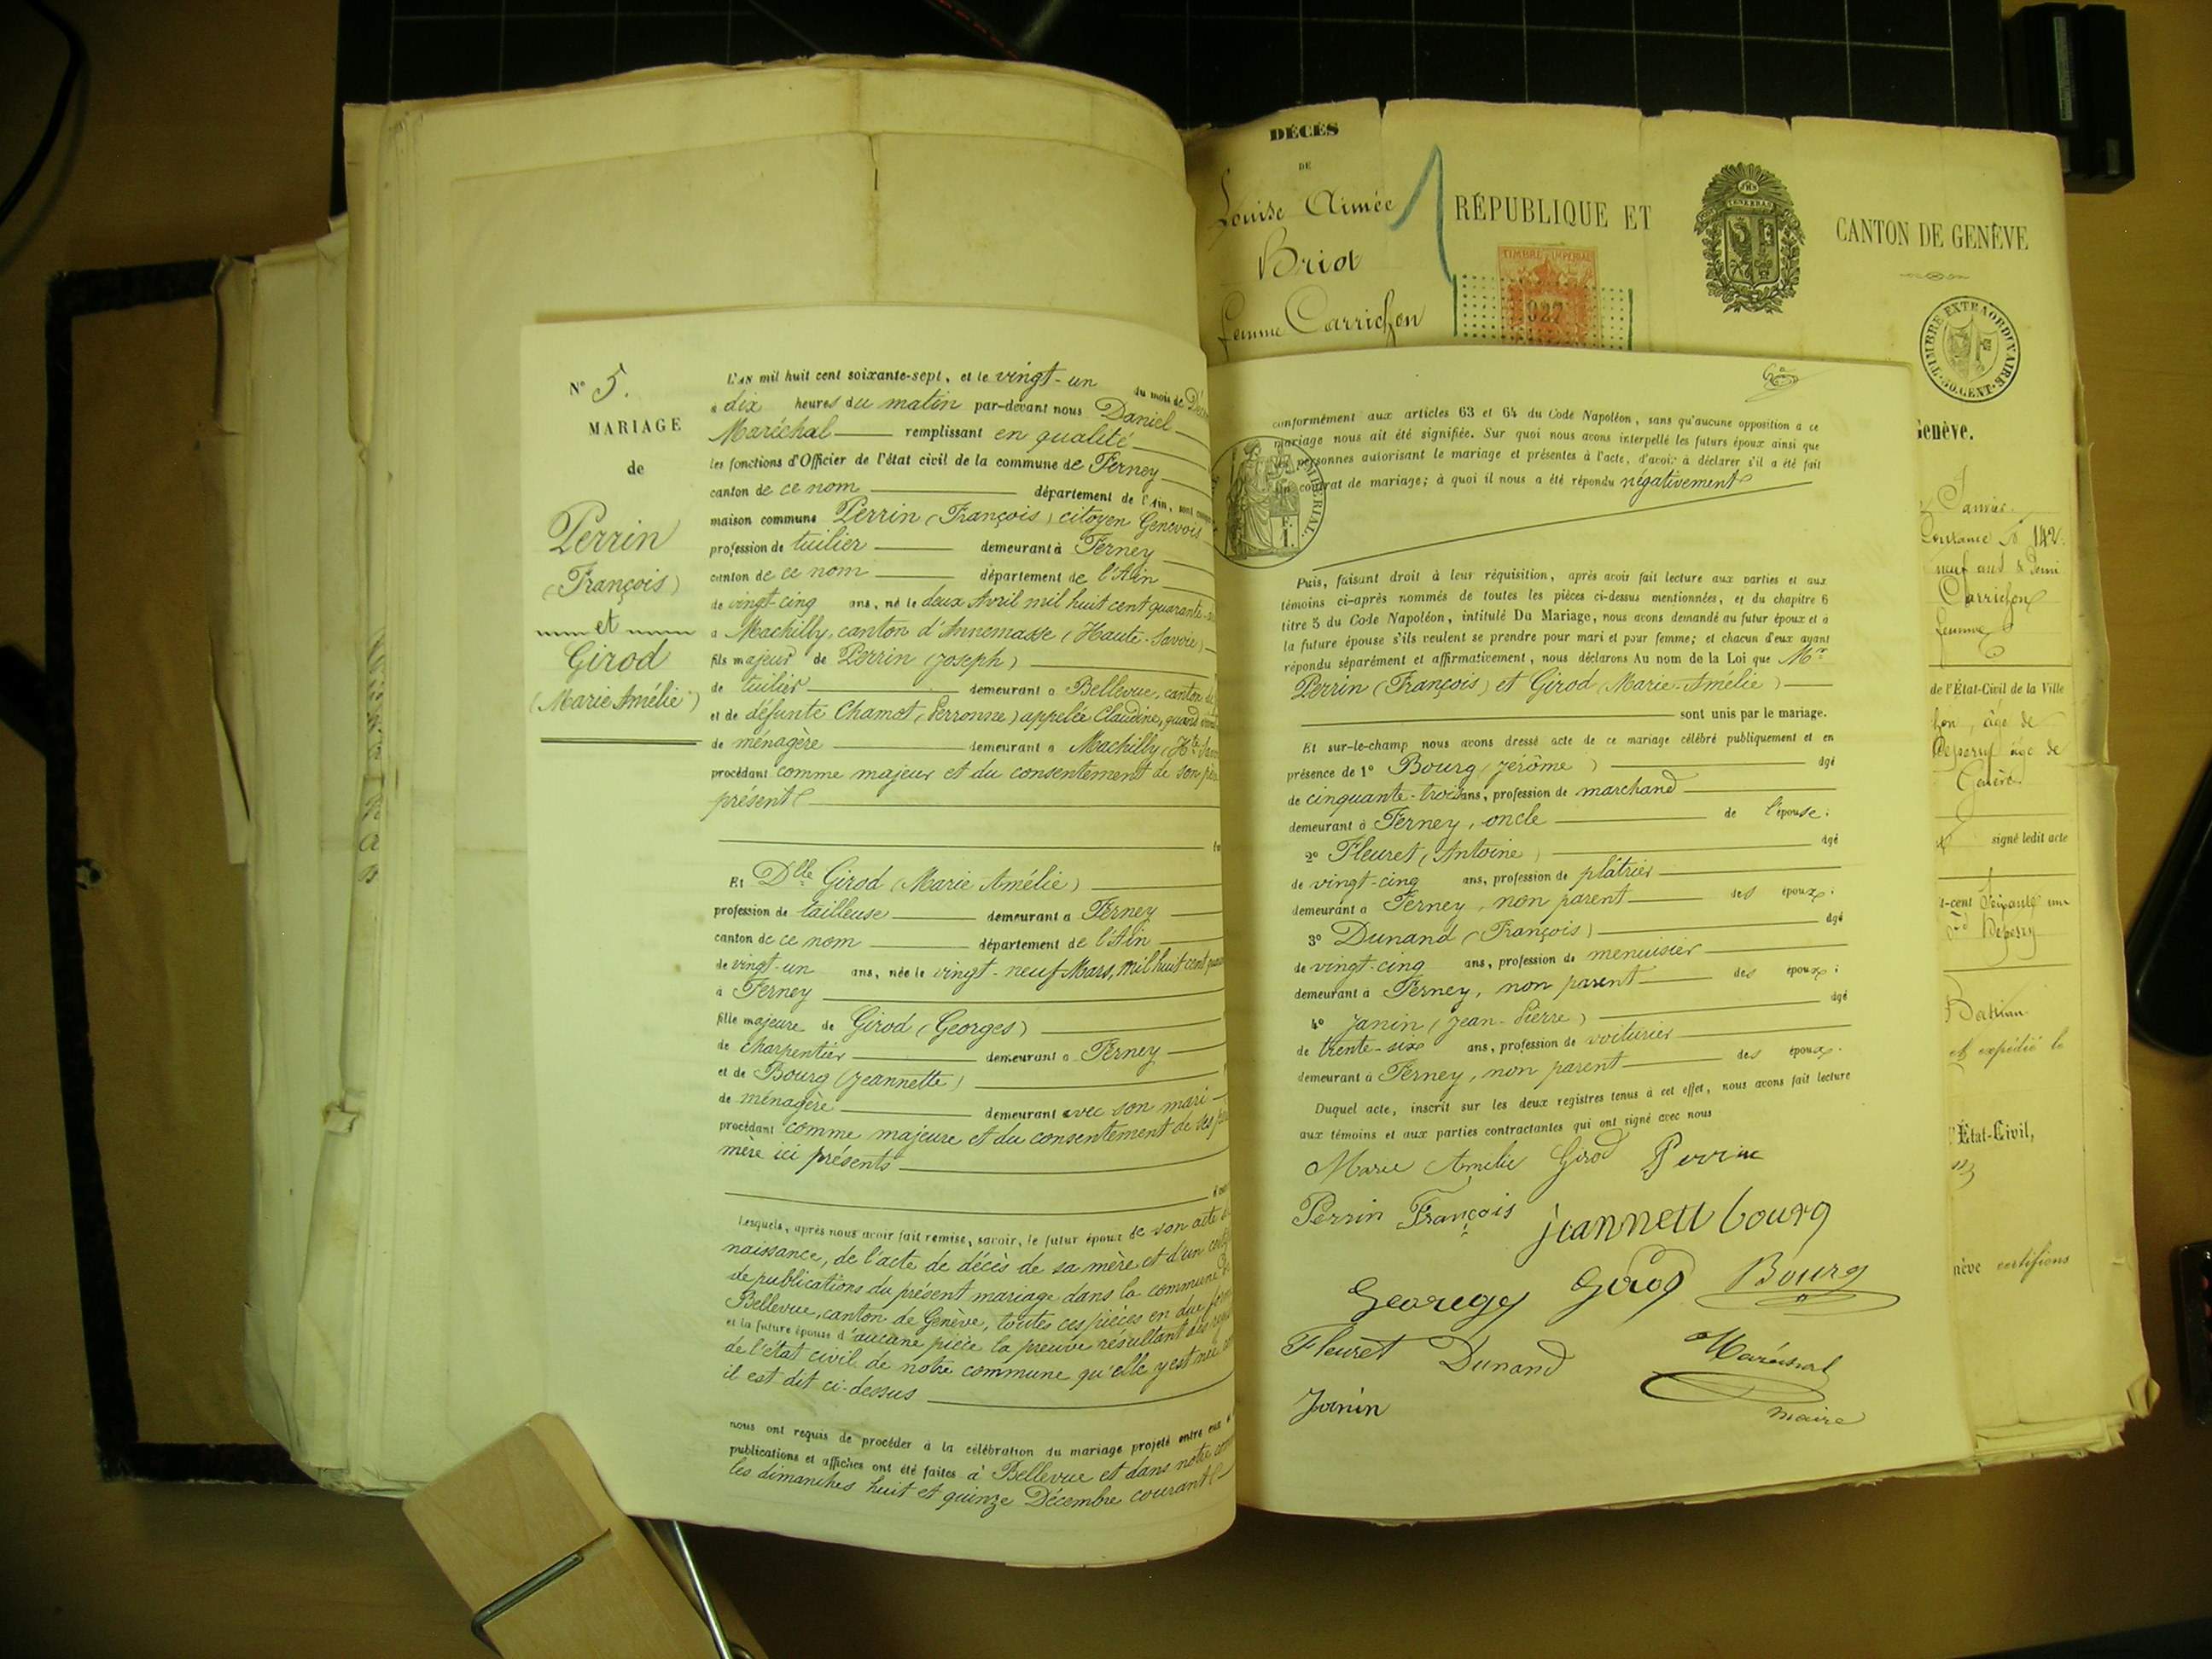 N° 5.
MARIAGE
de
Perrin
(François)
et
Girod
(Marie Amélie)
L'AN mil huit cent soixante-sept, et le vingt-un du mois de
à dix heures du matin par-devant nous Daniel
Maréchal remplissant en qualité
les fonctions d'Officier de l'état civil de la commune de Ferney
canton de ce nom département de l'Ain, sont
maison commune Perrin (François) citoyen Genevois
profession de tuilier demeurant à Ferney
canton de ce nom département de l'Ain
de vingt-cinq ans, né le deux Avril mil huit cent quarante-
à Machilly, canton d'Annemasse (Haute-Savoie)
fils majeur de Perrin (Joseph)
de tuilier demeurant à Bellevue, canton de
et de défunte Chamot (Perronne) appelée Claudine, quand
de ménagère demeurant à Machilly (Hte
procédant comme majeur et du consentement de son père
présent
Et Dlle Girod (Marie Amélie)
profession de tailleuse demeurant à Ferney
canton de ce nom département de l'Ain
de vingt-un ans, née le vingt-neuf Mars, mil huit cent
à Ferney
fille majeure de Girod (Georges)
de charpentier demeurant à Ferney
et de Bourg (Jeannette)
de ménagère demeurant avec son mari
procédant comme majeure et du consentement de ses
mère ici présents
Lesquels, après nous avoir fait remise, savoir, le futur époux de son acte
naissance, de l'acte de décès de sa mère et d'un
de publications du présent mariage dans la commune
Bellevue, canton de Genève, toutes ces pièces en due
et la future épouse d'aucune pièce la preuve résultant des
de l'état civil de notre commune qu'elle y est née
il est dit ci-dessus
nous ont requis de procéder à la célébration du mariage projeté entre eux
publications et affiches ont été faites à Bellevue et dans notre
les dimanches huit et quinze Décembre courant
DÉCÈS
DE
Louise Aimée
Briot
femme Carrichon
RÉPUBLIQUE ET CANTON DE GENÈVE
TIMBRE IMPERIAL
927
TIMBRE EXTRAORDINAIRE
50. CENT.
conformément aux articles 63 et 64 du Code Napoléon, sans qu'aucune opposition à ce
mariage nous ait été signifiée. Sur quoi nous avons interpellé les futurs époux ainsi que
les personnes autorisant le mariage et présentes à l'acte, d'avoir à déclarer s'il a été fait
un contrat de mariage; à quoi il nous a été répondu négativement
IMPERIAL.
Puis, faisant droit à leur réquisition, après avoir fait lecture aux parties et aux
témoins ci-après nommés de toutes les pièces ci-dessus mentionnées, et du chapitre 6
titre 5 du Code Napoléon, intitulé Du Mariage, nous avons demandé au futur époux et à
la future épouse s'ils veulent se prendre pour mari et pour femme; et chacun d'eux ayant
répondu séparément et affirmativement, nous déclarons Au nom de la Loi que Mr
Perrin (François) et Girod (Marie-Amélie)
sont unis par le mariage.
Et sur-le-champ nous avons dressé acte de ce mariage célébré publiquement et en
présence de 1° Bourg (Jerôme) âgé
de cinquante-trois ans, profession de marchand
demeurant à Ferney, oncle de l'épouse.
2° Fleuret (Antoine) âgé
de vingt-cinq ans, profession de plâtrier
demeurant à Ferney, non parent des époux.
3° Dunand (François) âgé
de vingt-cinq ans, profession de menuisier
demeurant à Ferney, non parent des époux;
4° Janin (Jean-Pierre) âgé
de trente-six ans, profession de voiturier
demeurant à Ferney, non parent des époux.
Duquel acte, inscrit sur les deux registres tenus à cet effet, nous avons fait lecture
aux témoins et aux parties contractantes qui ont signé avec nous
Marie Amélie Girod Perrin
Perrin François
jeannett bourg
Girod Bourg
Fleuret Dunand Maréchal
Janin maire
Genève.
Coutance N° 142
neuf ans & demi
Carrichon
femme
de l'État-Civil de la Ville
âgé de
âgé de
Genève
signé ledit acte
et expédié le
l'État-Civil,
certifions